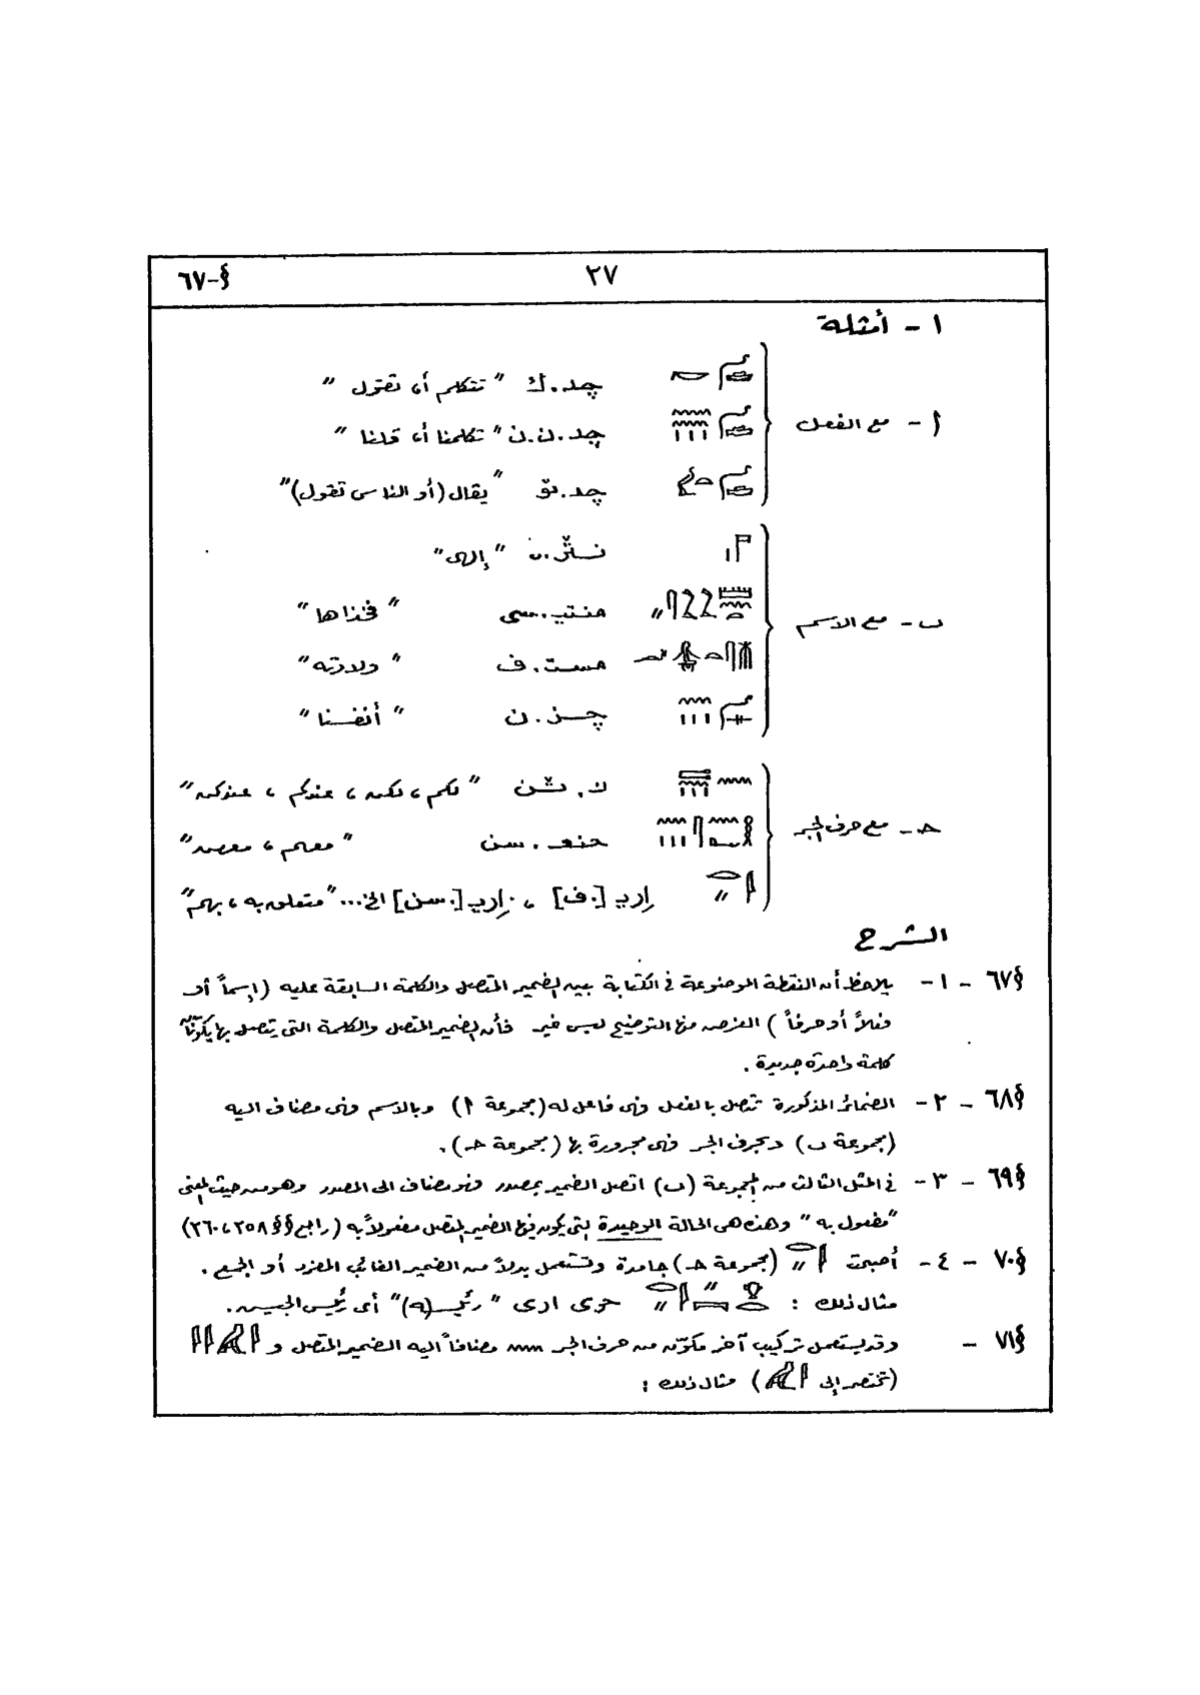 §-٦٧ ٢٧
١ - أمثلة
أ - مع الفعل
چد.ك " تتكلم أى تقول "
چد.ن.ن " تكلمنا أى قلنا "
چد.تو " يقال (أو الناس تقول) "
ب - مع الاسم
" إلهى "
منتى.سى " فخذاها "
مست.ف " ولادته "
چس.ن " أنفسنا "
حـ - مع حرف الجر
ن.ثن " لكم ، لكن ، عندكم ، عندكن "
حنع.سن " معهم ، معهن "
إرى [.ف] ، إرى [.سن] الخ... " متعلق به ، بهم "
الشرح
§٦٧ - ١ - يلاحظ أن النقطة الموضوعة فى الكتابة بين الضمير المتصل والكلمة السابقة عليه (إسماً أو
فعلاً أو حرفاً ) الغرض منها التوضيح ليس غير فأن الضمير المتصل والكلمة التى يتصل بها يكوّنان
كلمة واحدة جديدة .
§٦٨ - ٢ - الضمائر المذكورة تتصل بالفعل فهى فاعل له (مجموعة أ) وبالاسم فهى مضاف اليه
(مجموعة ب) وبحرف الجر فهى مجرورة بها (مجموعة حـ) .
§٦٩ - ٣ - فى المثل الثالث من المجموعة (ب) اتصل الضمير بمصدر فهو مضاف الى المصدر وهو من حيث المعنى
" مفعول به " وهذه هى الحالة الوحيدة التى يكون فيها الضمير المتصل مفعولاً به (راجع §§ ٢٥٨ ، ٢٦٠)
§٧٠ - ٤ - أصبحت (مجموعة حـ) جامدة وتستعمل بدلاً من الضمير الغائب المفرد أو الجمع .
مثال ذلك : حرى ارى " رئيس(ه) " أى رئيس الجيش .
§٧١ - وقد يستعمل تركيب آخر مكوّن من حرف الجر مضافاً اليه الضمير المتصل و
(تختصر إلى ) مثال ذلك :